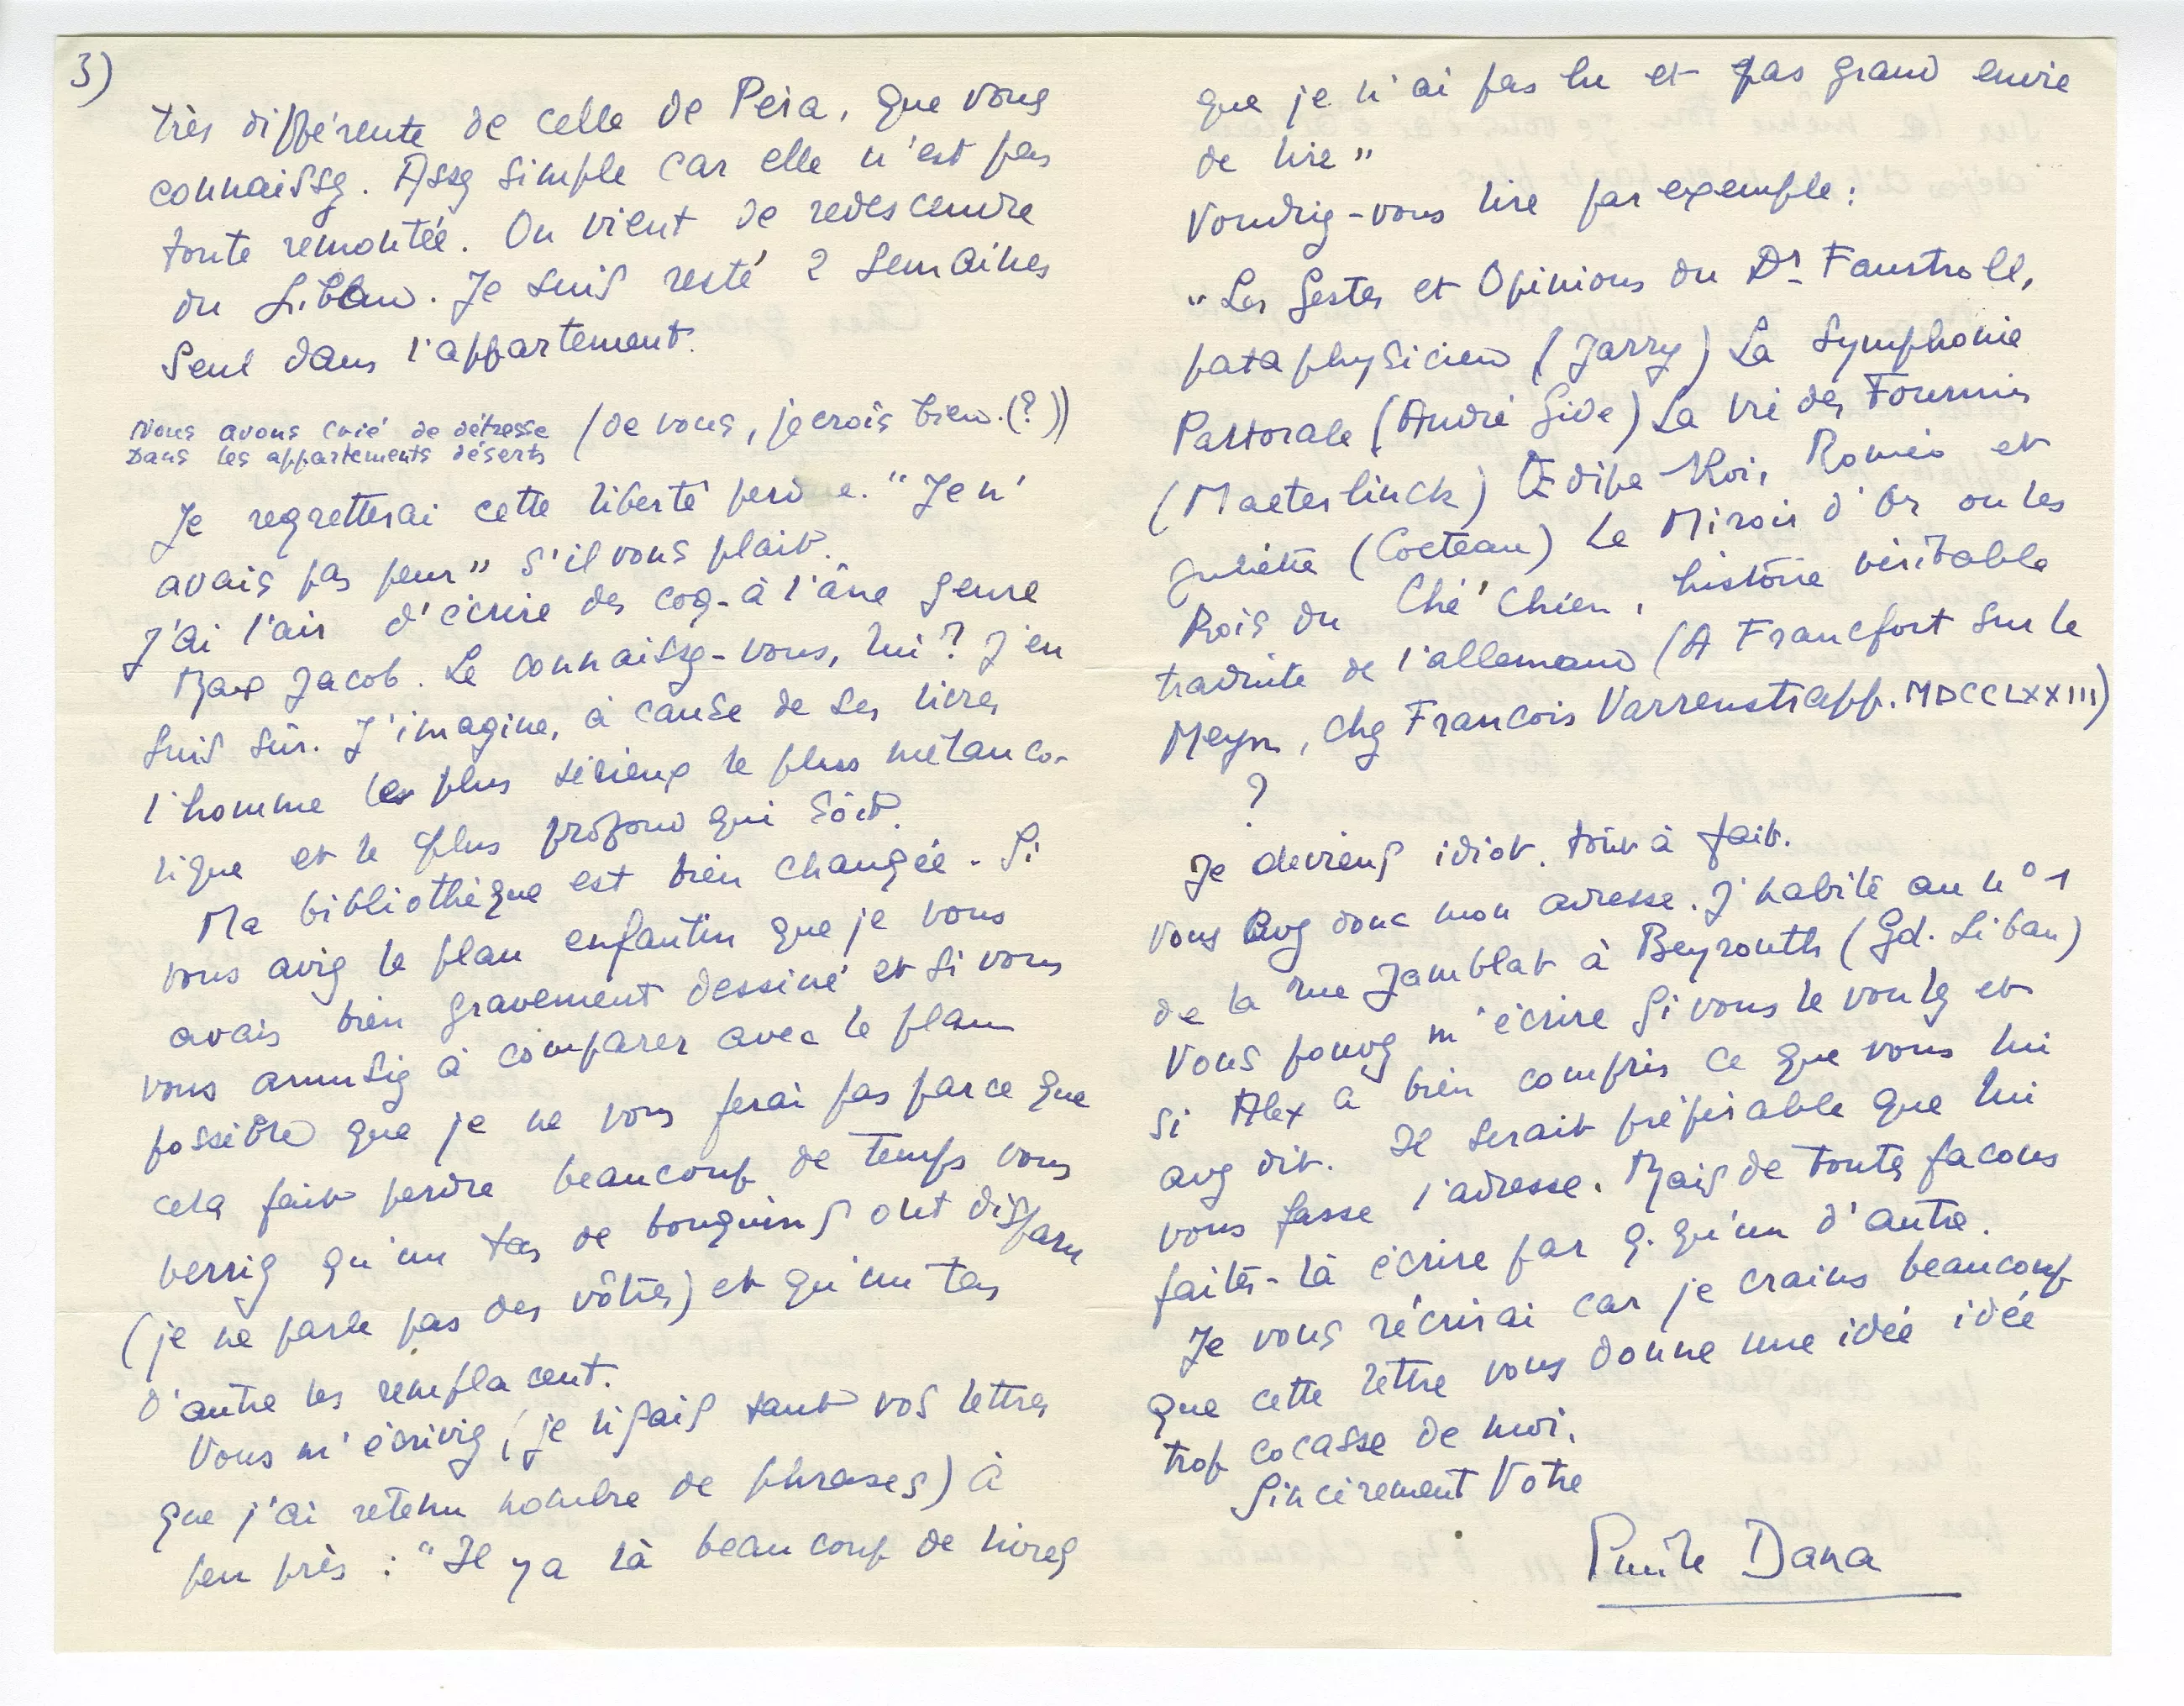 3)
très différente de celle de Péra, que vous
connaissez. Assez simple car elle n'est pas
toute remontée. On vient de redescendre
du Liban. Je suis resté 2 semaines
seul dans l'appartement.
Nous avons crié de détresse (de vous, je crois bien.(?))
Dans les appartements déserts
Je regretterai cette liberté perdue. "Je n'
avais pas peur" s'il vous plait.
J'ai l'air d'écrire des coq-à l'âne genre
Max Jacob. Le connaissez-vous, lui? J'en
suis sûr. J'imagine, à cause de ses livres
l'homme le plus sérieux le plus mélanco-
lique et le plus profond qui soit.
Ma bibliothèque est bien changée. Si
vous aviez le plan enfantin que je vous
avais bien gravement dessiné et si vous
vous amusiez à comparer avec le plan
possible que je ne vous ferai pas parce que
cela fait perdre beaucoup de temps vous
verriez qu'un tas de bouquins ont disparu
(je ne parle pas des vôtres) et qu'un tas
d'autre les remplacent.
Vous m'écriviez (je lisais tant vos lettres
que j'ai retenu nombre de phrases) à
peu près : "Il y a là beaucoup de livres
que je n'ai pas lu et pas grand envie
de lire"
Voudriez-vous lire par exemple :
"Les Gestes et Opinions du Dr Faustroll,
pataphysicien (Jarry) La Symphonie
Pastorale (André Gide) La vie des Fourmis
(Maeterlinck) Œdipe Roi, Roméo et
Juliette (Cocteau) Le Miroir d'Or ou les
Rois du Ché'Chien, histoire véritable
traduite de l'allemand (A Francfort sur le
Meyn, chez Francois Varrenstrapp. MDCCLXXIII)
?
Je deviens idiot. tout à fait.
Vous avez donc mon adresse. J'habite au n° 1
de la rue Jamblat à Beyrouth (Gd. Liban)
Vous pouvez m'écrire si vous le voulez et
si Alex a bien compris ce que vous lui
avez dit. Il serait préférable que lui
vous fasse l'adresse. Mais de toutes facons
faites-là écrire par q. qu'un d'autre.
Je vous récrirai car je crains beaucoup
que cette lettre vous donne une idée idée
trop cocasse de moi.
Sincèrement Votre
Dana